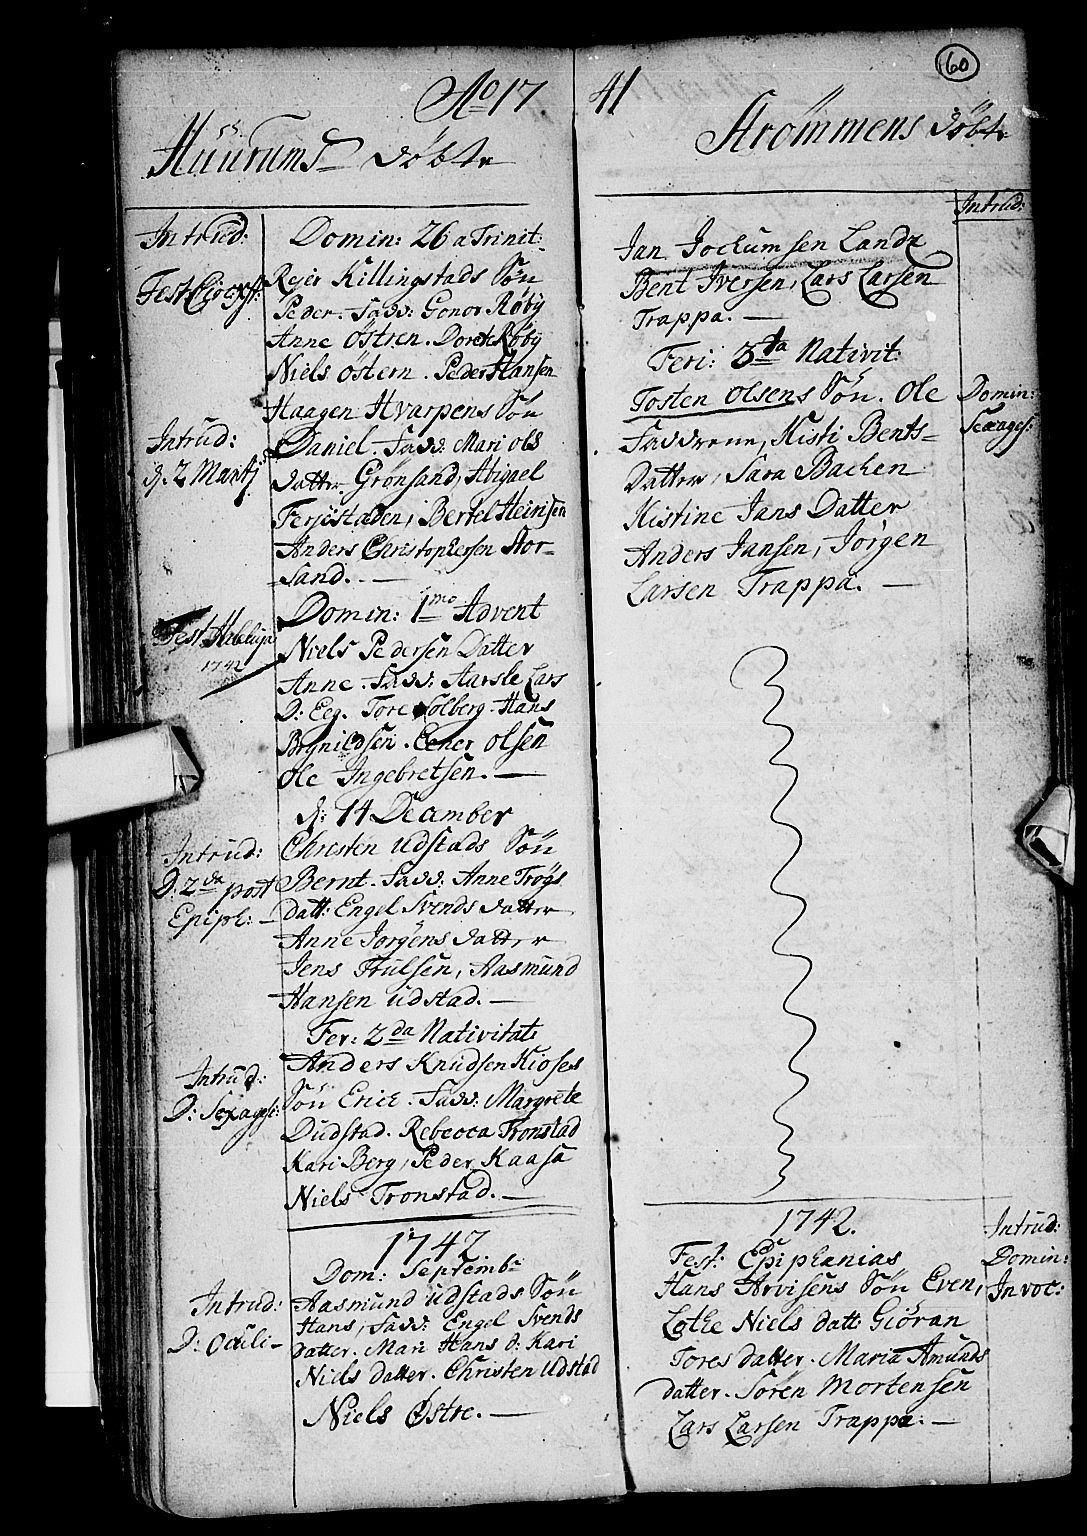 60
Ao 17 41
Huurums döbte
Intrud: Domin: 26 a Trinit:
Rejer Killingstads Sön
Peder. Fadd: Gonor Röby
Anne Östren. Doret Röby
Niels Östern. Peder Hansen
Haagen Hvarpens Sön
Intrud:
d. 2 Martj
Daniel. Fadd: Mari Ols
datter Grönsand, Abigael
Ferjestaden, Bertel Heinsen
Anders Christophersen Stor-
sand. —
Domin: 1mo Advent
1742
Niels Pedersen Datter
Anne. Fadd: Aarsle Lars
D: Eeg. Tore Solberg. Hans
Brynildsen. Eener Olsen
Ole Ingebretsen. —
d. 14 December
Intrud:
D: 2da post
Epiph: —
Christen Udstads Sön
Bernt. Fadd: Anne Trögs
datt: Engel Svends datter
Anne Jorgens datter
Jens Trulsen, Aasmund
Hansen Udstad. —
Fer: 2da Nativitat:
Intrud:
D: Sexages:
Anders Knudsen Kioses
Sön Erich. Fadd: Margrete
Dudstad. Rebecca Tronstad
Kari Berg, Peder Kaasa
Niels Tronstad. —
1742
Dom: Septemb:
Intrud:
D: Oculi —
Aasmund Udstads Sön
Hans, Fadd: Engel Svends
datter. Mari Hans d: Kari
Niels datter. Christen Udstad
Niels Østre. —
Strömmens döbte
Intrud:
Jan Jochumsen Landz
Bent Iversen, Lars Larsen
Trappa. —
Feri: 3tia Nativit:
Domin:
Sexages:
Tosten Olsens Sön. Ole
Fadderne, Kisti Bents-
Datter, Sara Backen
Kistine Jans Datter
Anders Jansen, Jörgen
Larsen Trappa. —
1742.
Intrud:
Domin:
Invoc:
Fest: Epiphanias
Hans Arvesens Sön Even,
Lothe Niels datt: Giöran
Tores datter. Maria Amunds
datter. Sören Mortensen
Lars Larsen Trappa. —